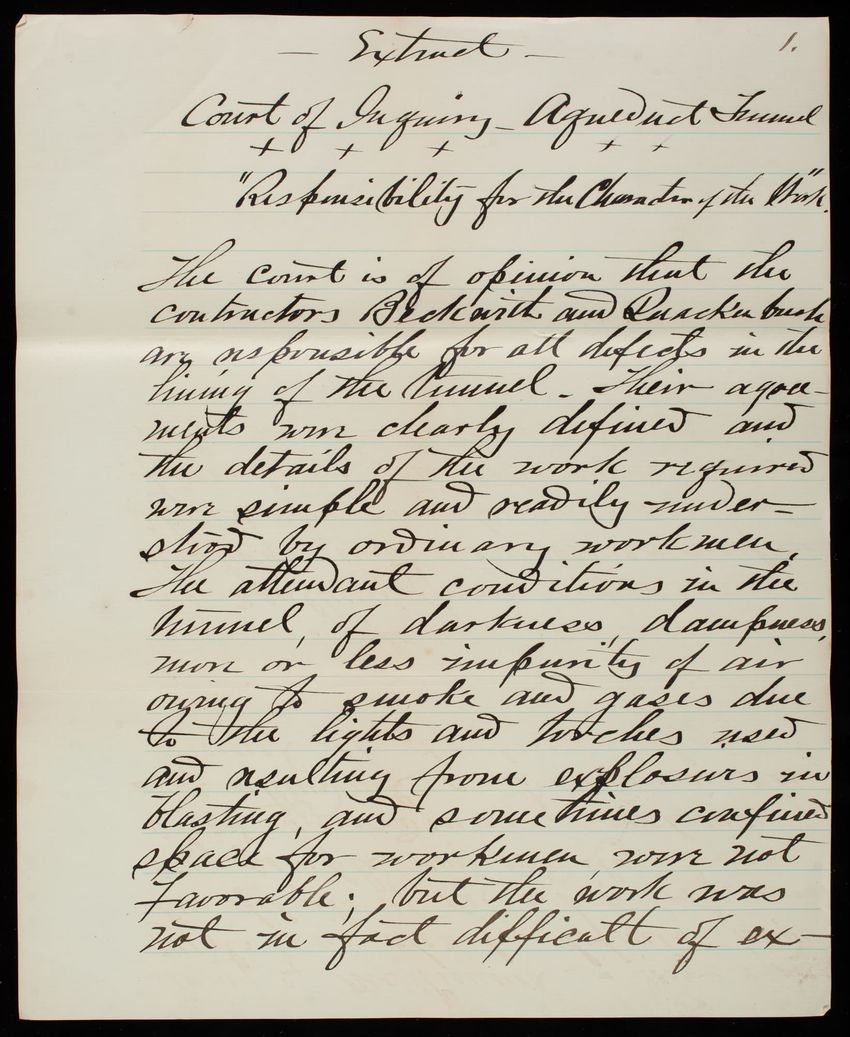 — Extract —
1.
Court of Inquiry — Aqueduct Tunnel
+ + + + +
"Responsibility for the Character of the Work".
The court is of opinion that the
contractors Beckwith and Quackenbush
are responsible for all defects in the
lining of the tunnel. Their agree-
ments were clearly defined and
the details of the work required
were simple and readily under-
stood by ordinary workmen.
The attendant conditions in the
tunnel, of darkness, dampness,
more or less impurity of air
owing to smoke and gases due
to the lights and torches used
and resulting from explosives in
blasting, and sometimes confined
space for workmen, were not
favorable; but the work was
not in fact difficult of ex-